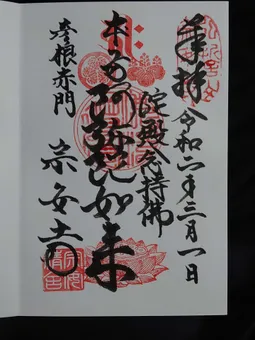 奉拝
令和二年三月一日
淀殿念持佛
本尊阿弥陀如来
彦根赤門
宗安寺